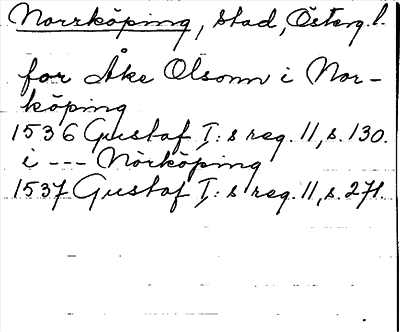 Norrköping, stad, Österg.l.
for Åke Olsonn i Nor-
köping
1536 Gustaf I:s reg. 11, s. 130.
i --- Nörköping
1537 Gustaf I:s reg. 11, s. 271.